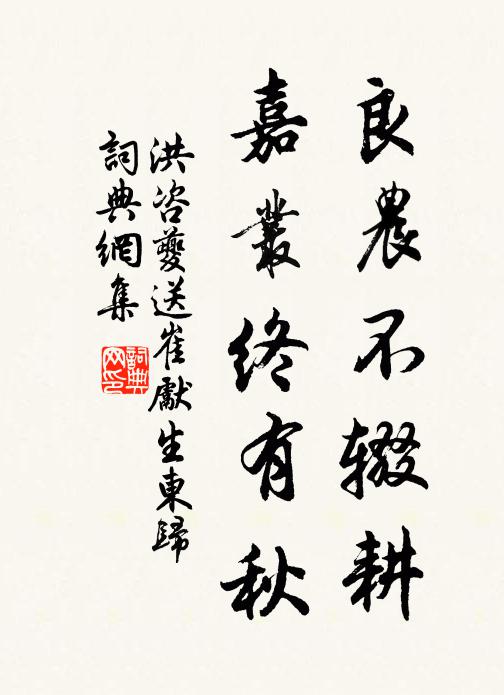 良農不辍耕
嘉叢终有秋
洪咨夔送崔獻生東歸
詞典網集
詞典网印